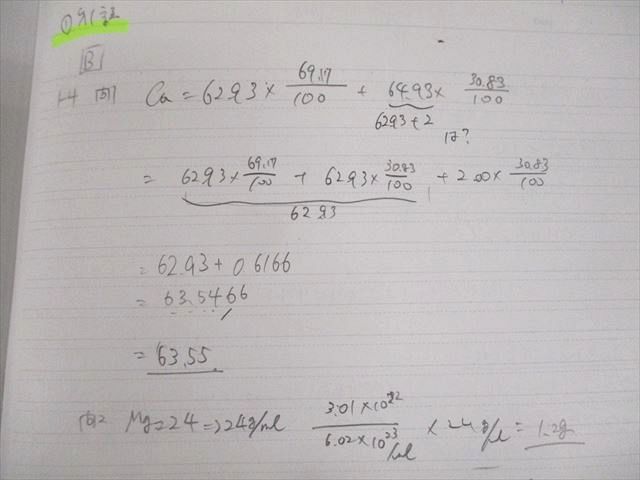 B
Ca = 62.93 × 69.17/100 + 64.93 × 30.83/100
62.93+2
= 62.93 × 69.17/100 + 62.93 × 30.83/100 + 2.00 × 30.83/100
62.93
= 62.93 + 0.6166
= 63.5466
= 63.55
問2 Mg=24 => 24g/mol 3.01×10^22 / 6.02×10^23/mol × 24 g/mol = 1.2g